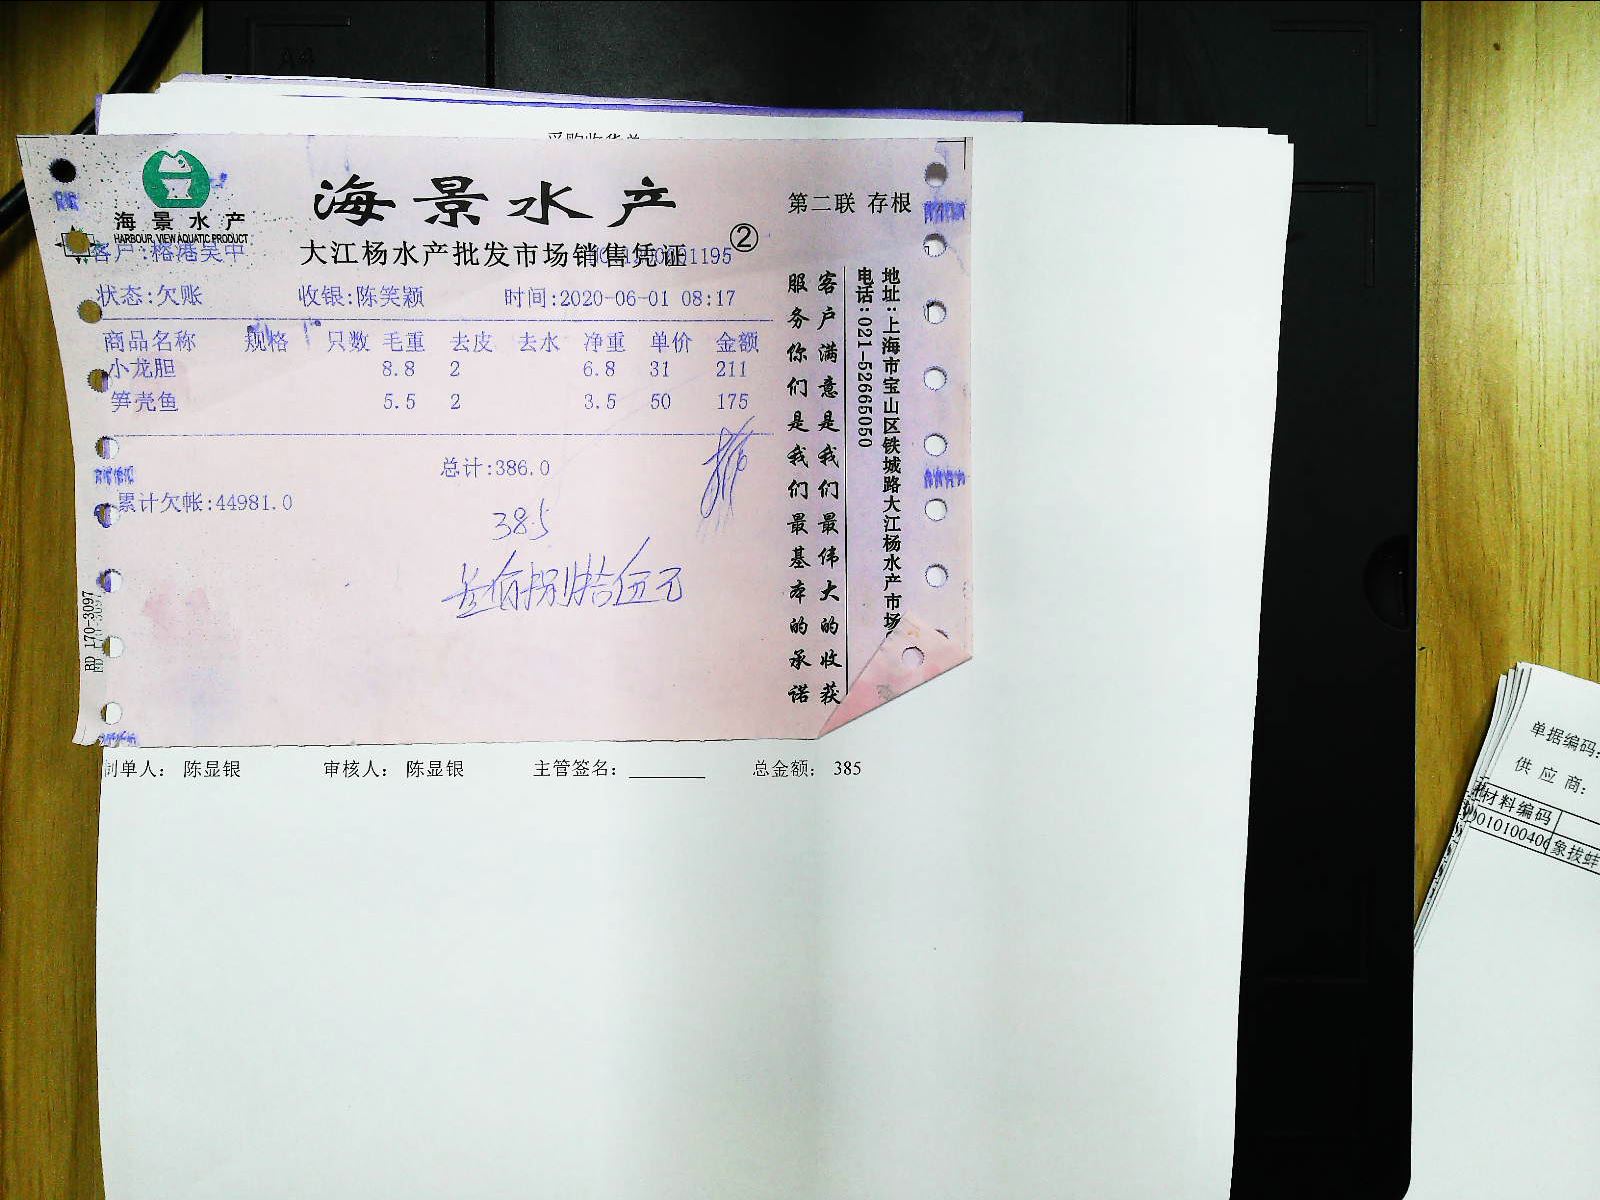 采购收货单
海景水产
HARBOUR VIEW AQUATIC PRODUCT
海景水产
第二联 存根
②
大江杨水产批发市场销售凭证
客户:榕港吴中
状态:欠账 收银:陈笑颖 时间:2020-06-01 08:17
商品名称 规格 只数 毛重 去皮 去水 净重 单价 金额
小龙胆 8.8 2 6.8 31 211
笋壳鱼 5.5 2 3.5 50 175
总计:386.0
累计欠帐:44981.0
385
叁佰捌拾伍元
客户满意是我们最伟大的收获
服务你们是我们最基本的承诺
地址:上海市宝山区铁城路大江杨水产市场
电话:021-52665050
BD 170-3097
制单人: 陈显银 审核人: 陈显银 主管签名: 总金额: 385
单据编码:
供 应 商:
材料编码
象拔蚌
A4